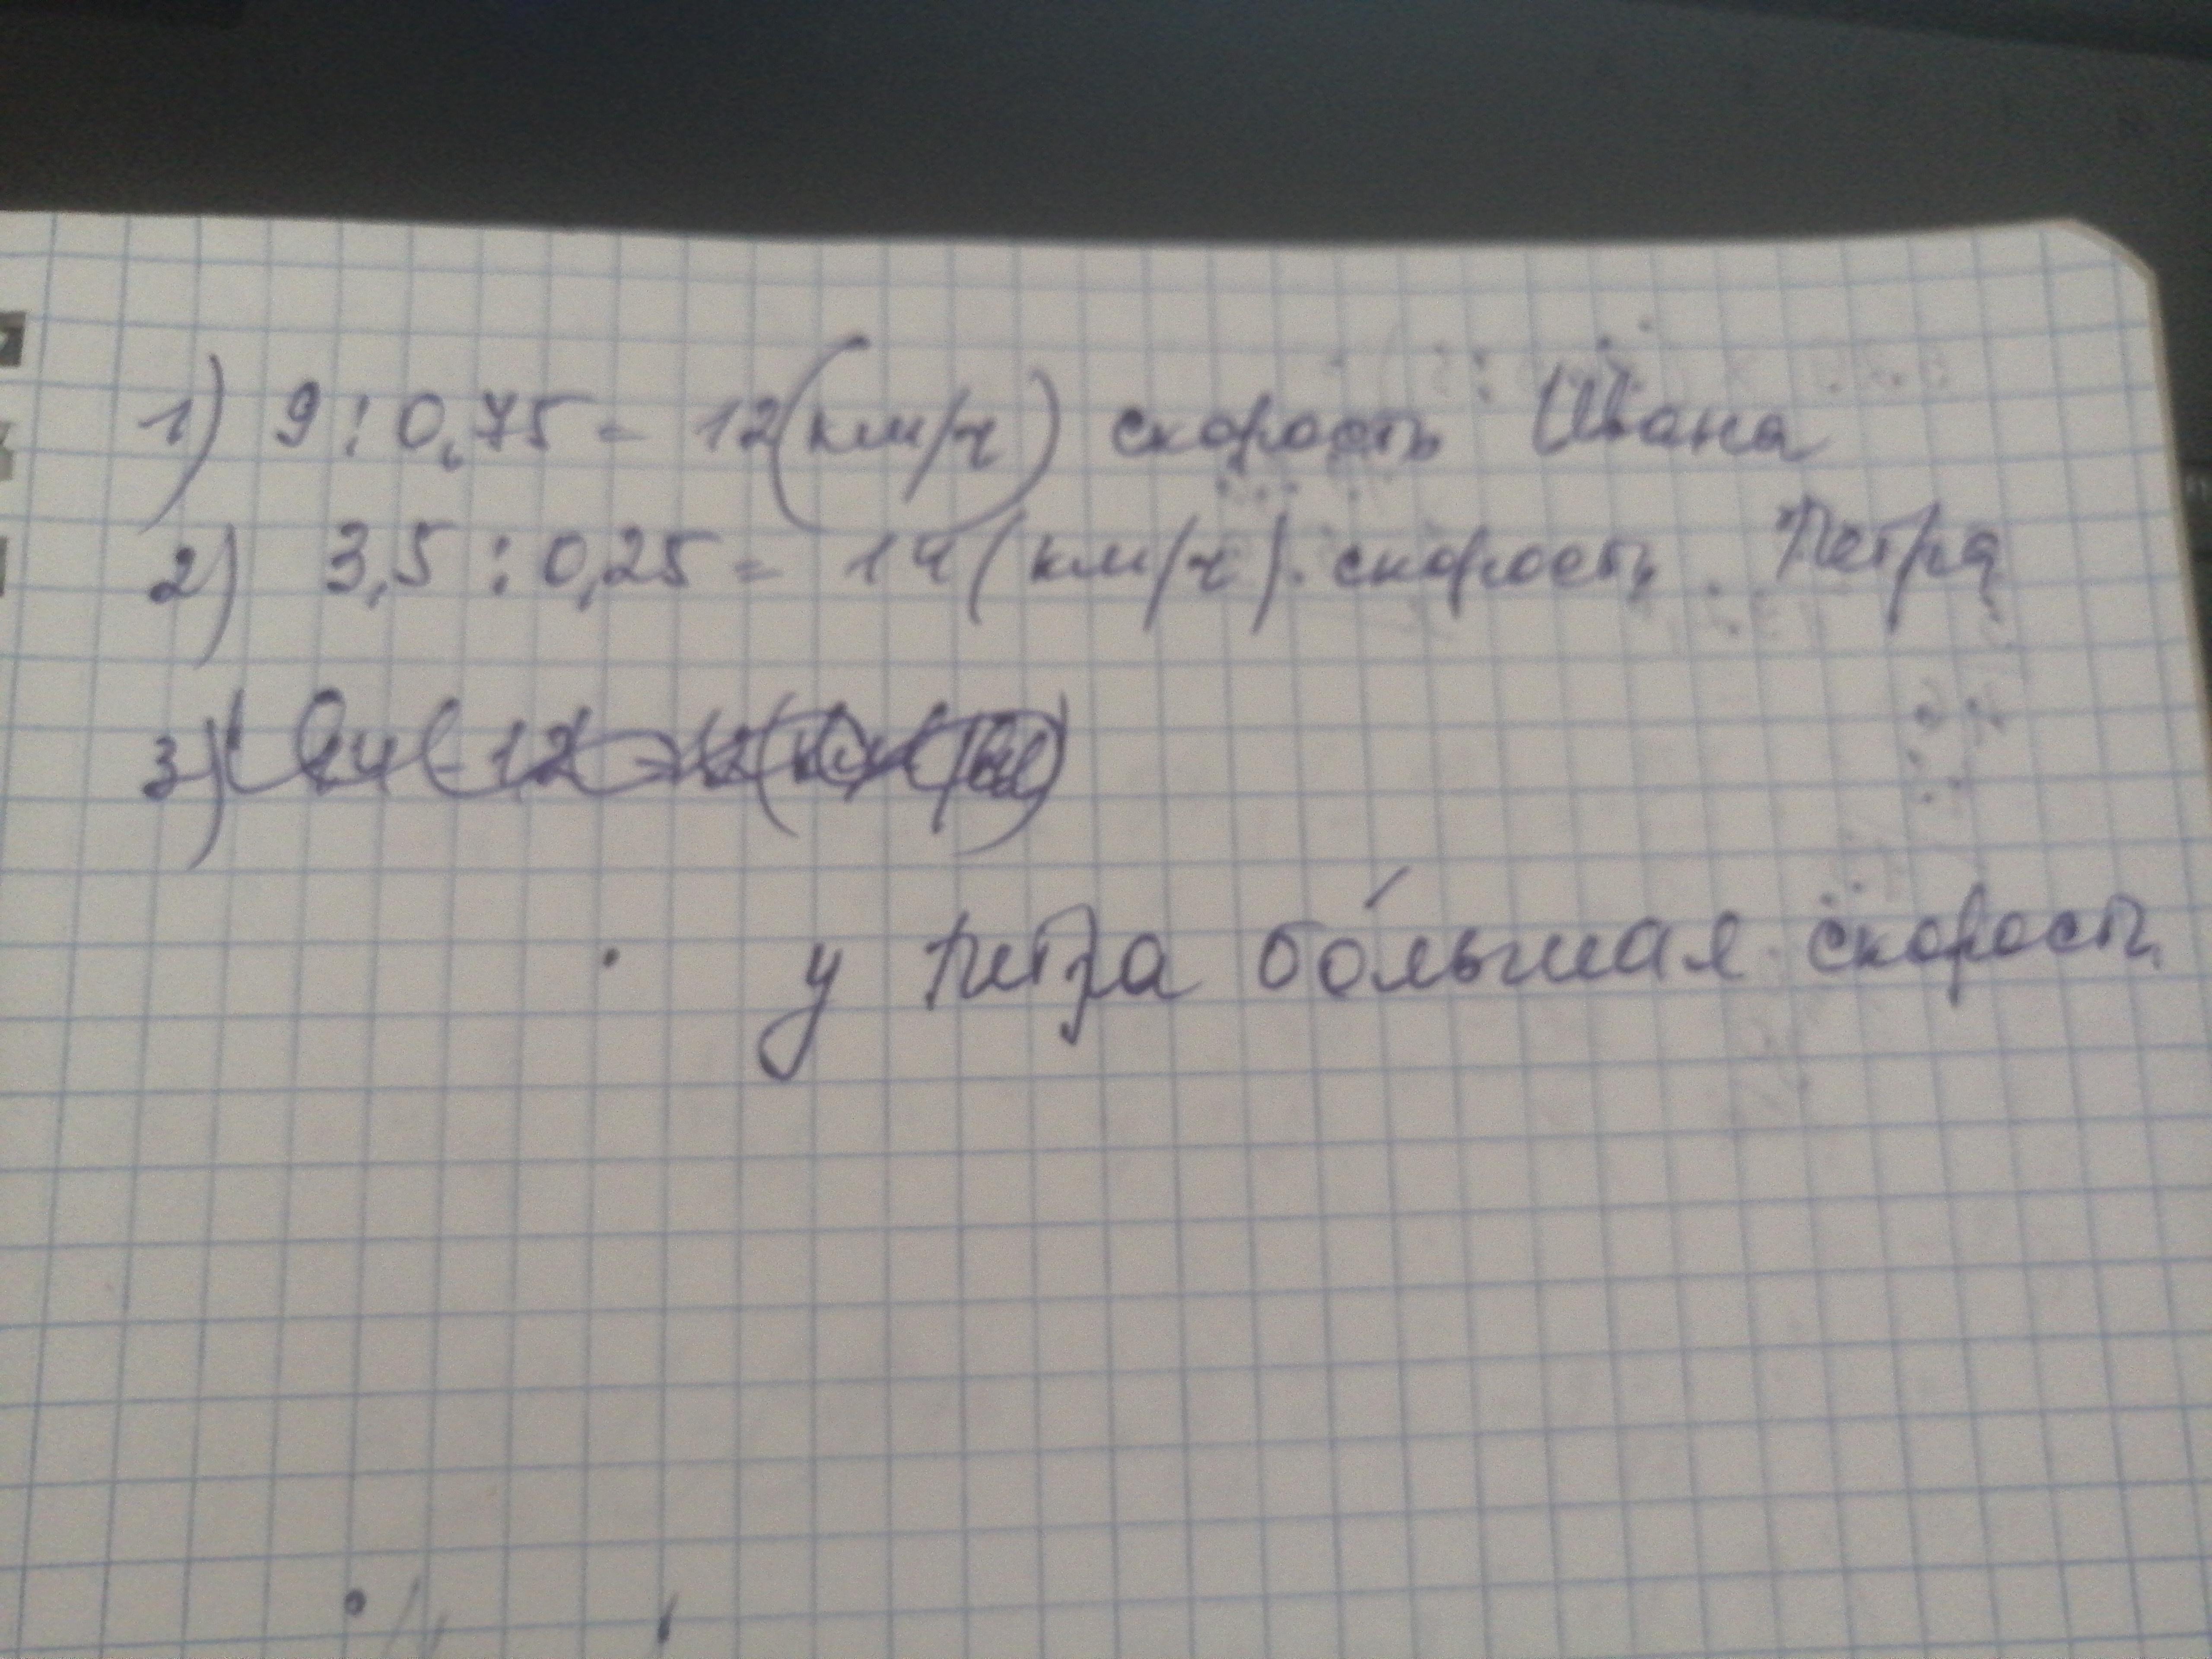 1) 9 : 0,75 = 12 (км/ч) скорость Ивана
2) 3,5 : 0,25 = 14 (км/ч). скорость Петра
3)
у петра бо́льшая скорость.